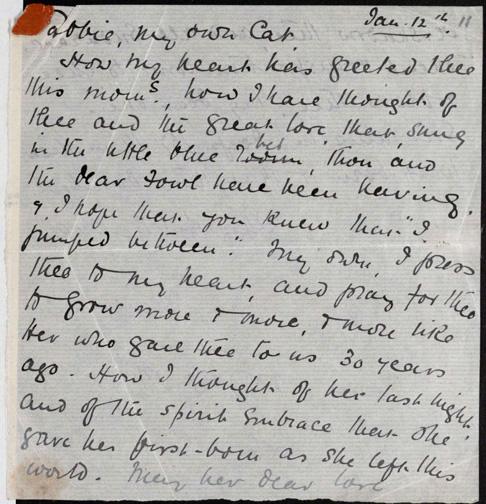 Jan. 12th 11
Tabbie, my own Cat,
How my heart has greeted thee
this morng., how I have thought of
thee and the great love that
in the little blue room, thou and
the dear Fowl have been having.
& I hope that you knew that "I
jumped between". My own, I press
thee to my heart, and pray for thee
to grow more & more, & more like
Her who gave thee to us 30 years
ago. How I thought of her last night
and of the spirit embrace that she
gave her first-born as she left this
world. May her dear love